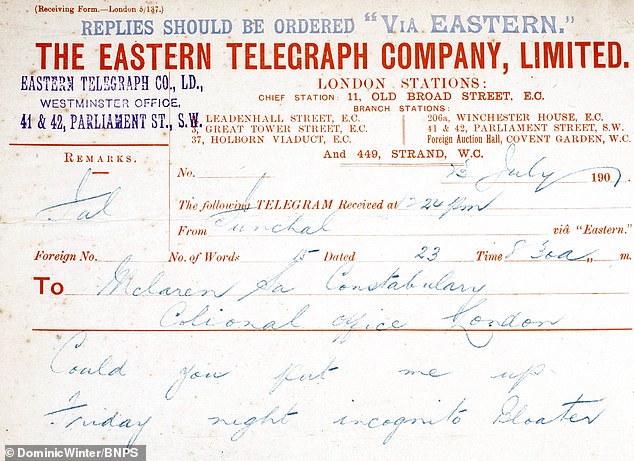 (Receiving Form.—London 5/137.)
REPLIES SHOULD BE ORDERED "VIA EASTERN."
THE EASTERN TELEGRAPH COMPANY, LIMITED.
EASTERN TELEGRAPH CO., LD.,
WESTMINSTER OFFICE,
41 & 42, PARLIAMENT ST., S.W.
LONDON STATIONS:
CHIEF STATION: 11, OLD BROAD STREET, E.C.
BRANCH STATIONS:
LEADENHALL STREET, E.C.
5, GREAT TOWER STREET, E.C.
37, HOLBORN VIADUCT, E.C.
206a, WINCHESTER HOUSE, E.C.
41 & 42, PARLIAMENT STREET, S.W.
Foreign Auction Hall, COVENT GARDEN, W.C.
And 449, STRAND, W.C.
REMARKS.
No. 23 July 1907
The following TELEGRAM Received at 12 24 pm
From Funchal via "Eastern."
Foreign No. No. of Words 15 Dated 23 Time 8 30a m.
To Mclaren Sa Constabulary
Colional office London
Could you put me up
Friday night incognito Bloater
© DominicWinter/BNPS